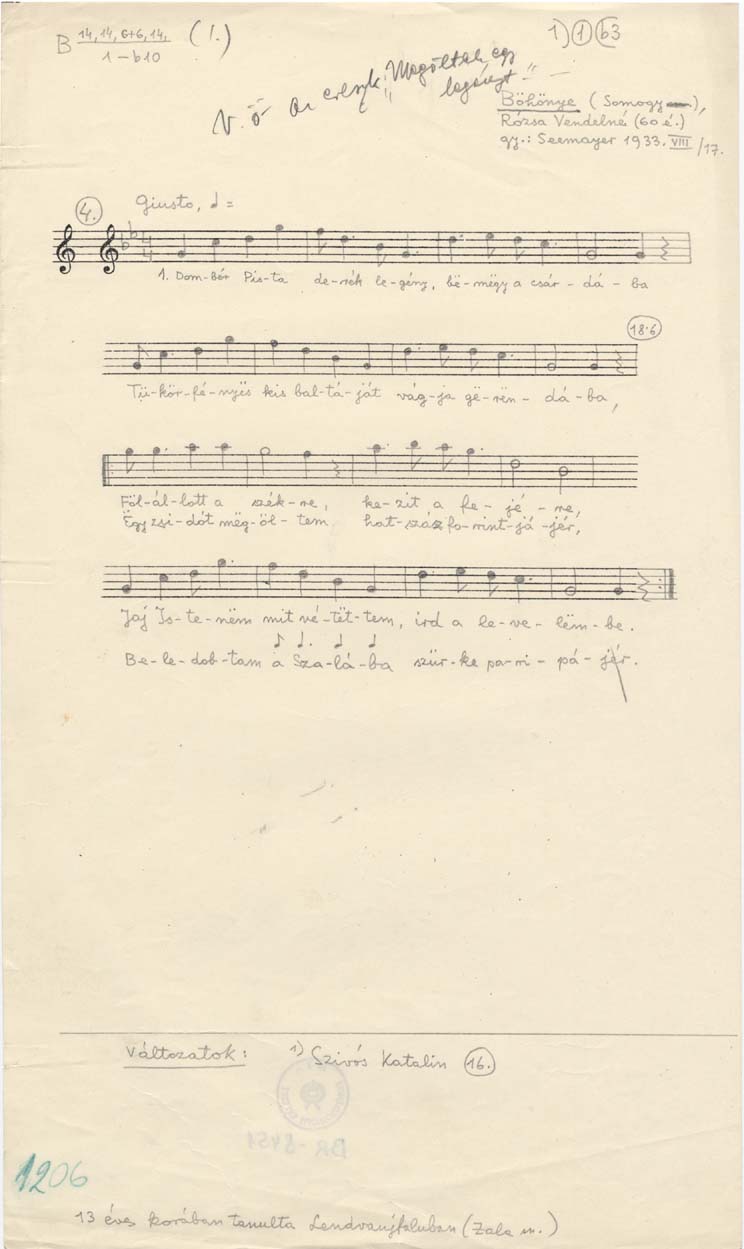 B 14,14, 6+6, 14, (1.)
1 – b10
1) 1 b3
V. ö az "Megöltek egy
legényt" –
Böhönye (Somogy),
Rózsa Vendelné (60 é.)
gy.: Seemayer 1933. VIII/17.
4. Giusto, ♩ =
1. Dom-bér Pis-ta de-rék le-gény, bë-mëgy a csár-dá-ba
18.6
Tü-kör-fé-nyës kis bal-tá-ját vág-ja gë-rën-dá-ba,
Föl-ál-lott a szék-re, ke-zit a fe-jé-re,
Ëgy zsi-dót mëg-öl-tem hat-száz fo-rint-já-jér,
Jaj Is-te-nëm mit vé-tët-tem, ird a le-ve-lëm-be.
Be-le-dob-tam a Sza-lá-ba szür-ke pa-ri-pá-jér.
Változatok: 1) Szivós Katalin 16.
BR-8451
1206
13 éves korában tanulta Lendvaujfaluban (Zala m.)